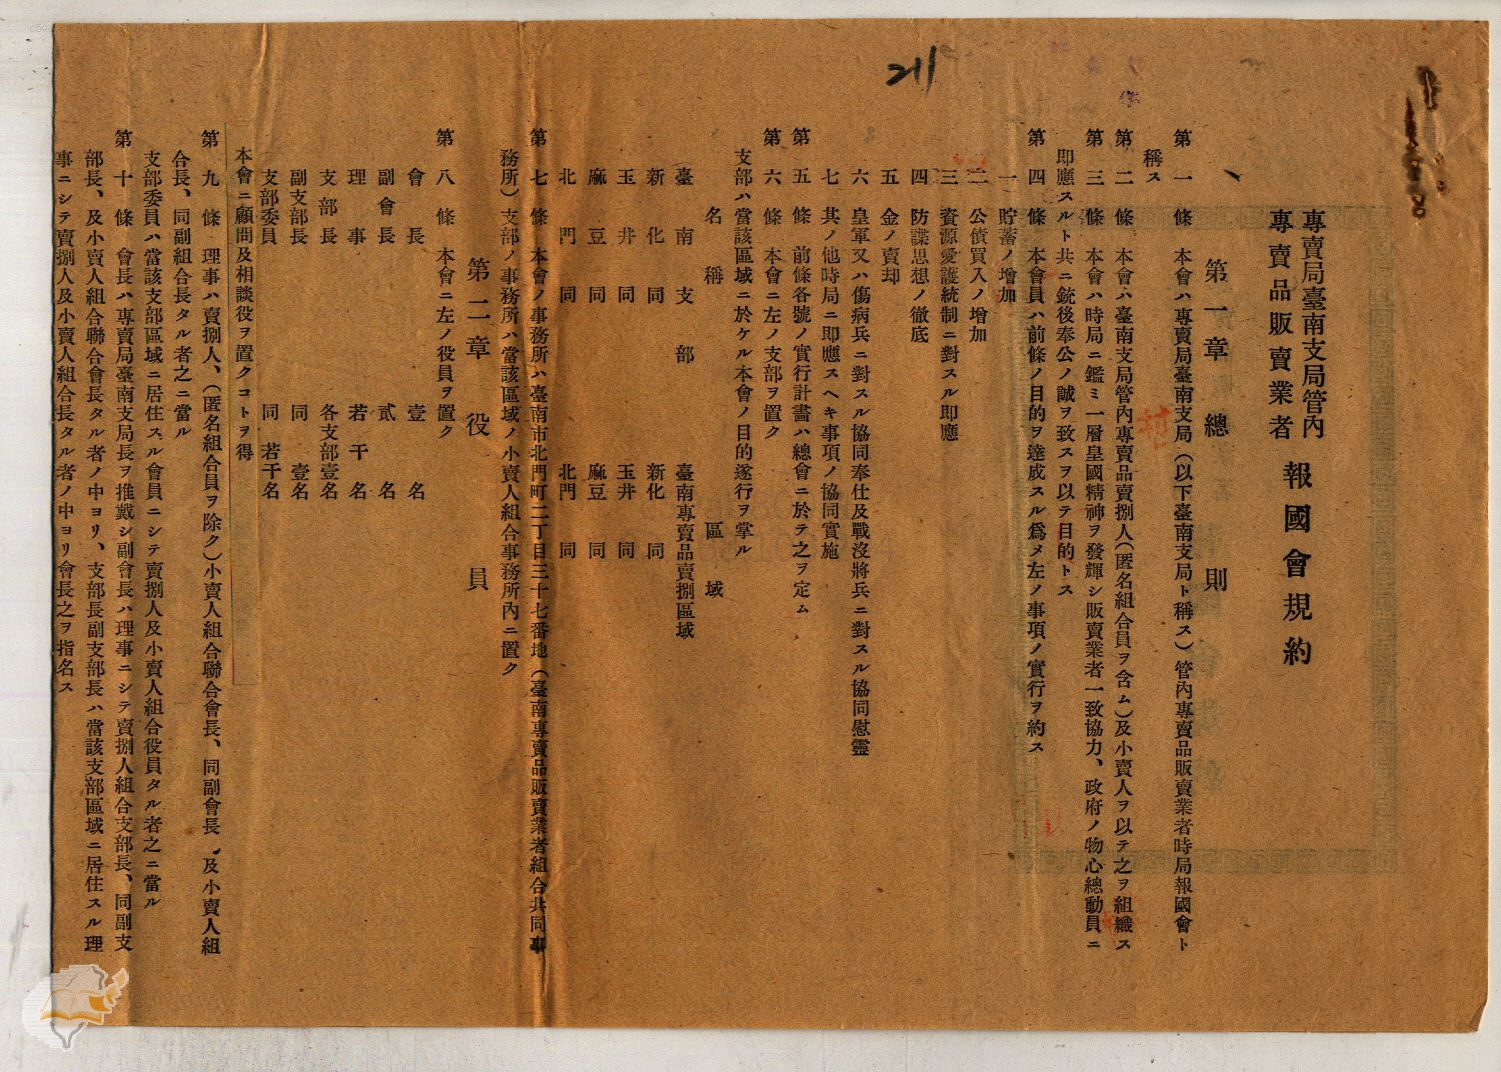 211
專賣局臺南支局管內
專賣品販賣業者
報國會規約
第一章 總則
第一條 本會ハ專賣局臺南支局(以下臺南支局ト稱ス)管內專賣品販賣業者時局報國會ト
稱ス
第二條 本會ハ臺南支局管內專賣品賣捌人(匿名組合員ヲ含ム)及小賣人ヲ以テ之ヲ組織ス
第三條 本會ハ時局ニ鑑ミ一層皇國精神ヲ發輝シ販賣業者一致協力、政府ノ物心總動員ニ
即應スルト共ニ銃後奉公ノ誠ヲ致スヲ以テ目的トス
第四條 本會員ハ前條ノ目的ヲ達成スル爲メ左ノ事項ノ實行ヲ約ス
一 貯蓄ノ增加
二 公債買入ノ增加
三 資源愛護統制ニ對スル即應
四 防諜思想ノ徹底
五 金ノ賣却
六 皇軍又ハ傷病兵ニ對スル協同奉仕及戰沒將兵ニ對スル協同慰靈
七 其ノ他時局ニ即應スヘキ事項ノ協同實施
第五條 前條各號ノ實行計畫ハ總會ニ於テ之ヲ定ム
第六條 本會ニ左ノ支部ヲ置ク
支部ハ當該區域ニ於ケル本會ノ目的遂行ヲ掌ル
名稱 區域
臺南支部 臺南專賣品賣捌區域
新化同 新化同
玉井同 玉井同
麻豆同 麻豆同
北門同 北門同
第七條 本會ノ事務所ハ臺南市北門町二丁目三十七番地(臺南專賣品販賣業者組合共同事
務所)支部ノ事務所ハ當該區域ノ小賣人組合事務所內ニ置ク
第二章 役員
第八條 本會ニ左ノ役員ヲ置ク
會長 壹名
副會長 貳名
理事 若干名
支部長 各支部壹名
副支部長 同 壹名
支部委員 同 若干名
本會ニ顧問及相談役ヲ置クコトヲ得
第九條 理事ハ賣捌人、(匿名組合員ヲ除ク)小賣人組合聯合會長、同副會長、及小賣人組
合長、同副組合長タル者之ニ當ル
支部委員ハ當該支部區域ニ居住スル會員ニシテ賣捌人及小賣人組合役員タル者之ニ當ル
第十條 會長ハ專賣局臺南支局長ヲ推戴シ副會長ハ理事ニシテ賣捌人組合支部長、同副支
部長、及小賣人組合聯合會長タル者ノ中ヨリ、支部長副支部長ハ當該支部區域ニ居住スル理
事ニシテ賣捌人及小賣人組合長タル者ノ中ヨリ會長之ヲ指名ス